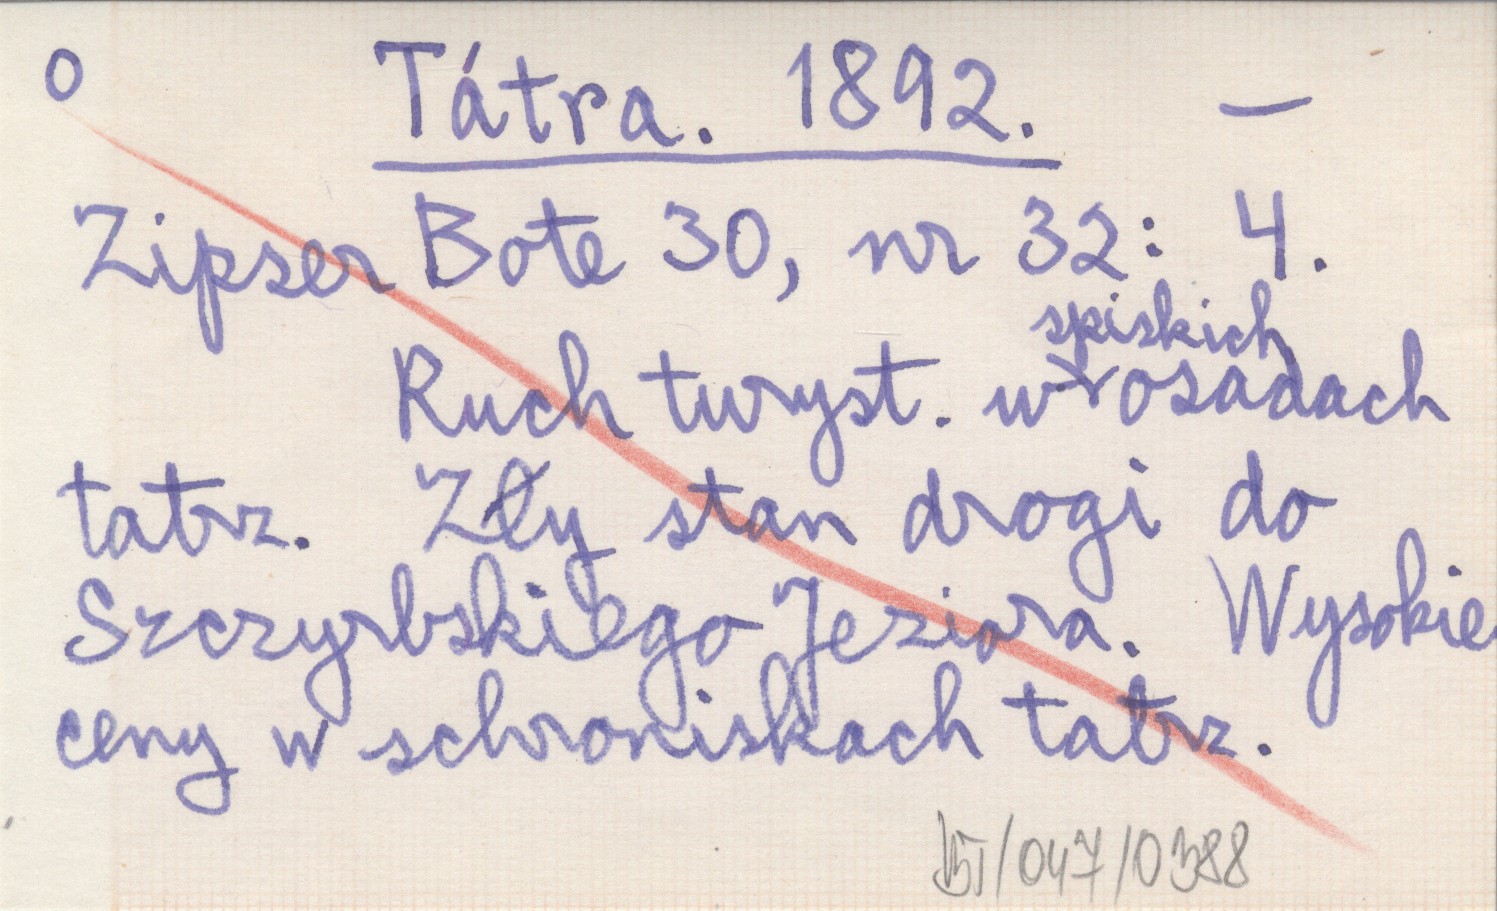 o Tátra. 1892. —
Zipser Bote 30, nr 32: 4.
spiskich
Ruch turyst. w osadach
tatrz. Zły stan drogi do
Szczyrbskiego Jeziora. Wysokie
ceny w schroniskach tatrz.
/047/0388